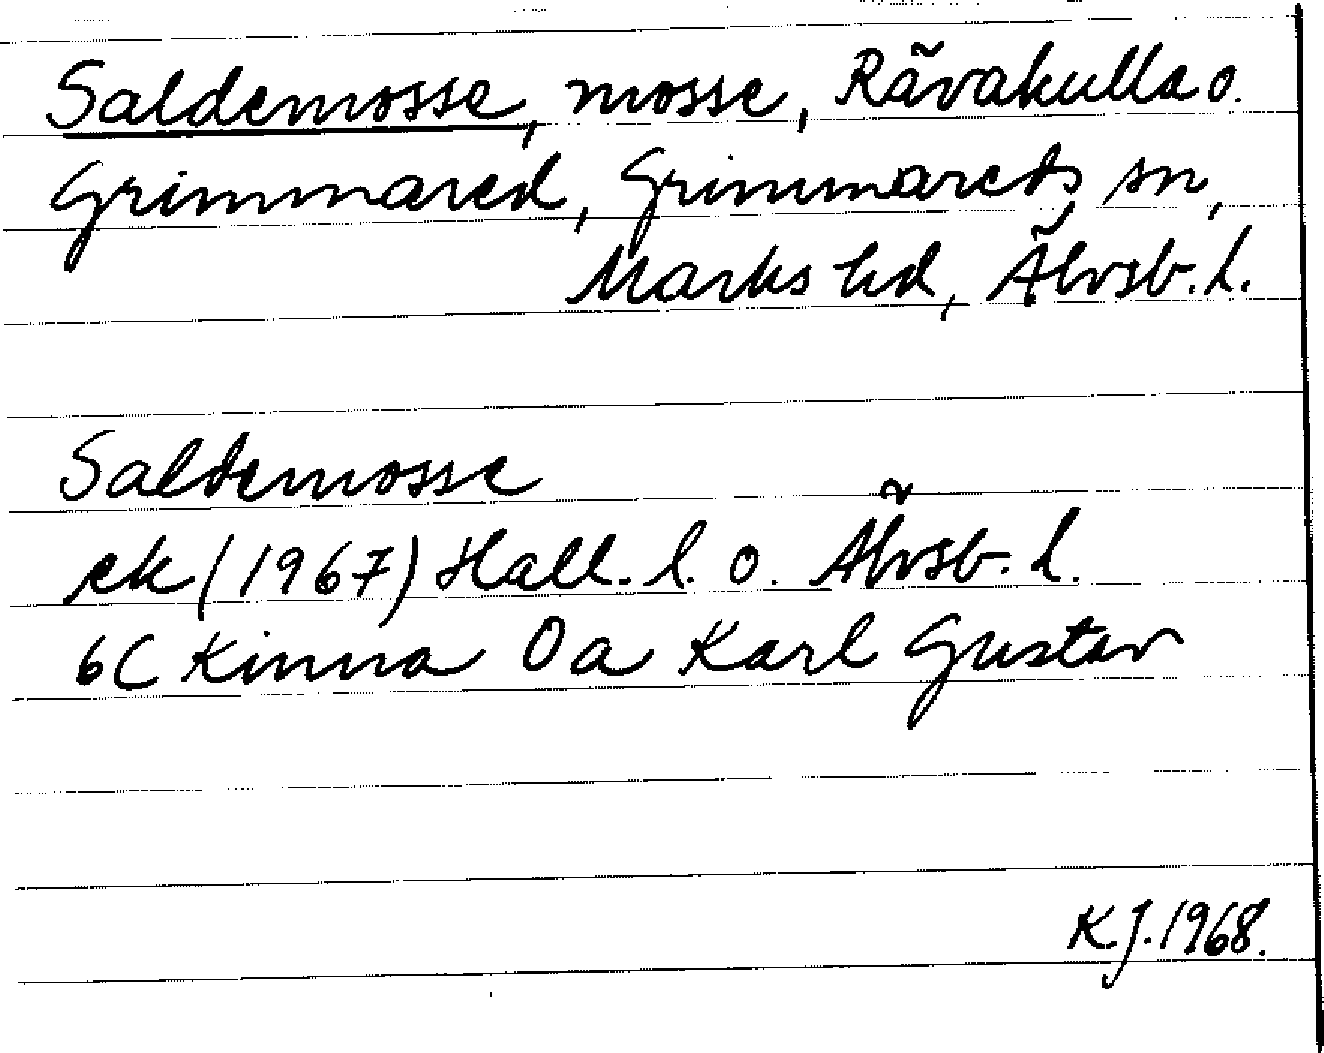 Saldemosse, mosse, Rävakulla o.
Grimmared, Grimmareds sn,
Marks hd, Älvsb. l.
Saldemosse
ek (1967) Hall. l. o. Älvsb. l.
6C Kinna 0a Karl Gustav
KJ. 1968.